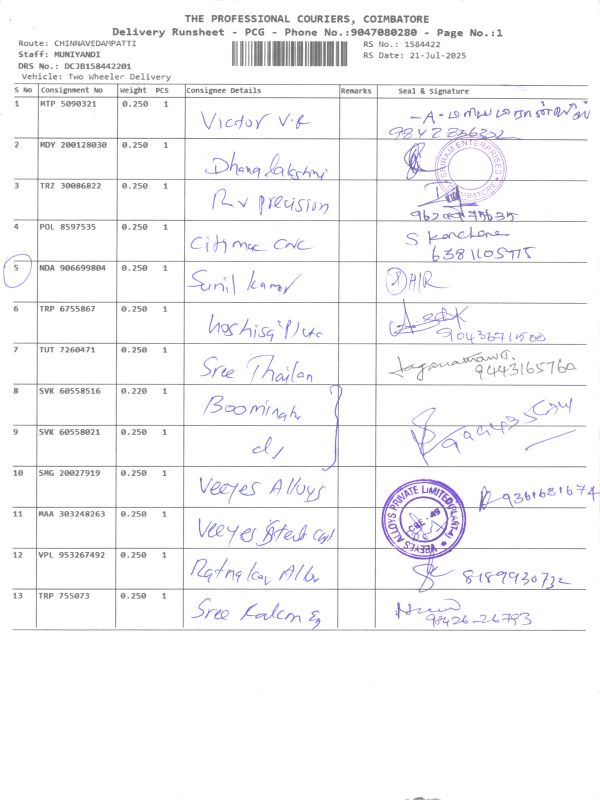 THE PROFESSIONAL COURIERS, COIMBATORE
Delivery Runsheet - PCG - Phone No.:9047080280 - Page No.:1
Route: CHINNAVEDAMPATTI
RS No.: 1584422
Staff: MUNIYANDI
RS Date: 21-Jul-2025
DRS No.: DCJB158442201
Vehicle: Two Wheeler Delivery
S No Consignment No Weight PCS Consignee Details Remarks Seal & Signature
1 MTP 5090321 0.250 1 Victor V.R
2 MDY 200128030 0.250 1 Dhanalakshmi
SRIRAM ENTERPRISES COIMBATORE
3 TRZ 30086822 0.250 1 R v precision
4 POL 8597535 0.250 1 Citymac cnc S Kanchana
6381105775
5 NDA 906699804 0.250 1 Sunil kumar
6 TRP 6755867 0.250 1
7 TUT 7260471 0.250 1 Sree Thailan Jaganathan T.
9443165760
8 SVK 60558516 0.220 1
9 SVK 60558021 0.250 1
10 SMG 20027919 0.250 1 Veeyes Alloys 9361631674
VEEYES ALLOYS PRIVATE LIMITED
11 MAA 303248263 0.250 1 Veeyes
12 VPL 953267492 0.250 1 8189930732
13 TRP 755073 0.250 1 Sree Falcon
98426-26793